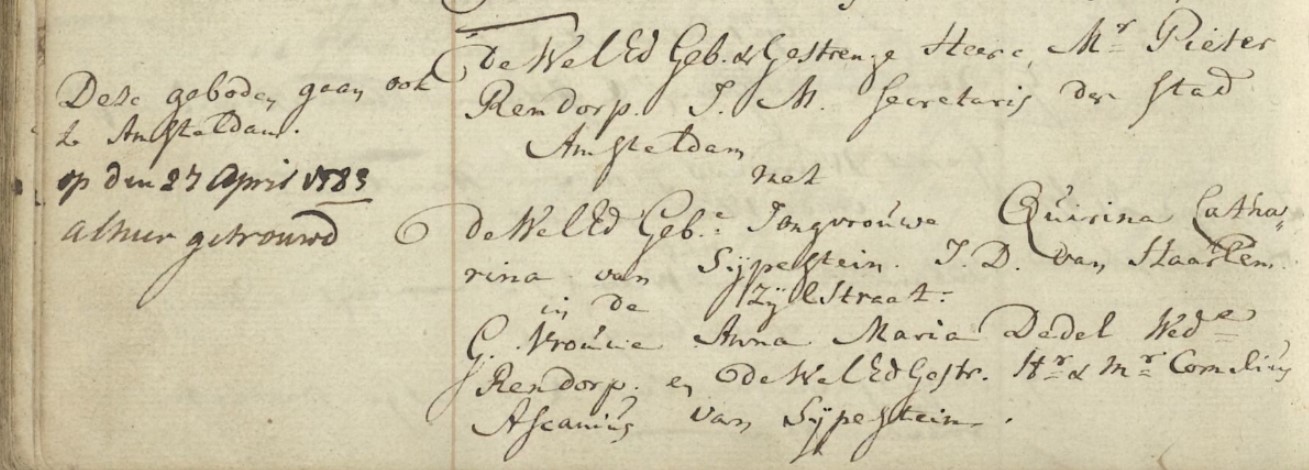 Deze geboden gaan ook
te Amsteldam.
op den 27 April 1783
alhier getrouwd
de Wel Ed Geb. & Gestrenge Heere, Mr Pieter
Rendorp. J. M. Secretaris der Stad
Amsteldam
met
de Wel Ed Geb.e Jongvrouwe Quirina Catha„
rina van Sÿpestein. J. D. van Haarlem.
in de Zÿlstraat:
G. Vrouwe Anna Maria Dedel Wede
Rendorp. en de Wel Ed Gestr. Hr & Mr Cornelius
Ascanius van Sÿpestein.